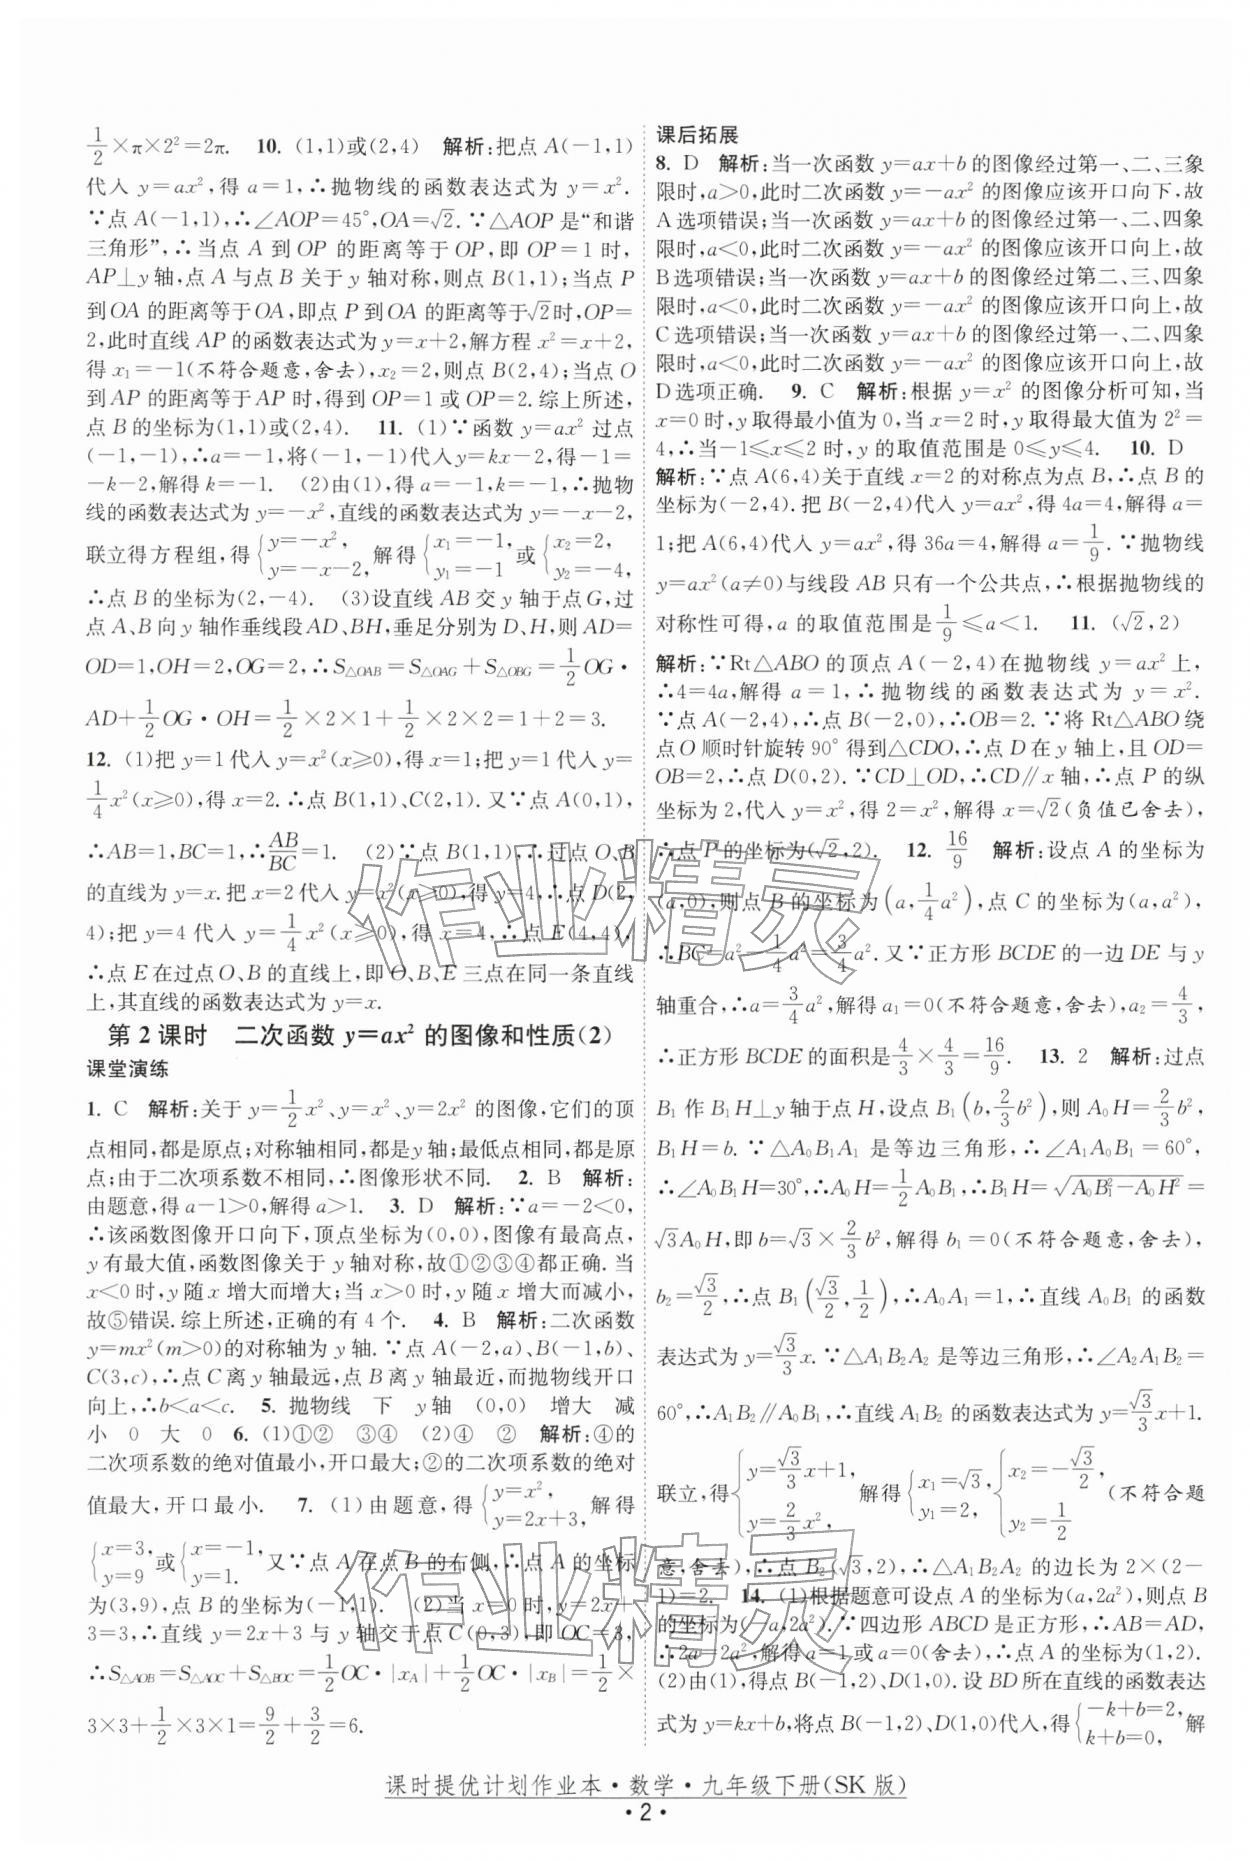 1/2×π×2²=2π. 10. (1,1)或(2,4) 解析:把点 A(-1,1)
代入 y=ax²,得 a=1,∴抛物线的函数表达式为 y=x².
∵点 A(-1,1),∴∠AOP=45°,OA=√2. ∵△AOP 是“和谐
三角形”,∴当点 A 到 OP 的距离等于 OP,即 OP=1 时,
AP⊥y 轴,点 A 与点 B 关于 y 轴对称,则点 B(1,1);当点 P
到OA 的距离等于 OA,即点 P 到OA 的距离等于√2时,OP=
2,此时直线 AP 的函数表达式为 y=x+2,解方程 x²=x+2,
得 x₁=-1(不符合题意,舍去),x₂=2,则点 B(2,4);当点 O
到 AP 的距离等于 AP 时,得到 OP=1 或 OP=2. 综上所述,
点 B 的坐标为(1,1)或(2,4). 11. (1)∵函数 y=ax² 过点
(-1,-1),∴a=-1,将(-1,-1)代入y=kx-2,得-1=
-k-2,解得 k=-1. (2)由(1),得 a=-1,k=-1,∴抛物
线的函数表达式为 y=-x²,直线的函数表达式为 y=-x-2,
联立得方程组,得{y=-x², y=-x-2, 解得{x₁=-1, y₁=-1 或{x₂=2, y₂=-4,
∴点 B 的坐标为(2,-4). (3)设直线 AB 交 y 轴于点G,过
点 A、B 向 y 轴作垂线段 AD、BH,垂足分别为 D、H,则 AD=
OD=1,OH=2,OG=2,∴S△OAB=S△OAG+S△OBG=1/2 OG·
AD+1/2 OG·OH=1/2×2×1+1/2×2×2=1+2=3.
12. (1)把 y=1 代入 y=x²(x≥0),得 x=1;把 y=1 代入 y=
1/4 x²(x≥0),得 x=2. ∴点 B(1,1)、C(2,1). 又∵点 A(0,1),
∴AB=1,BC=1,∴AB/BC=1. (2)∵点 B(1,1),∴过点 O、B
的直线为 y=x. 把 x=2 代入 y=x²(x≥0),得 y=4,∴点 D(2,
4);把 y=4 代入 y=1/4 x²(x≥0),得 x=4,∴点 E(4,4),
∴点 E 在过点 O、B 的直线上,即 O、B、E 三点在同一条直线
上,其直线的函数表达式为 y=x.
第 2 课时 二次函数 y=ax² 的图像和性质(2)
课堂演练
1. C 解析:关于 y=1/2 x²、y=x²、y=2x² 的图像,它们的顶
点相同,都是原点;对称轴相同,都是y 轴;最低点相同,都是原
点;由于二次项系数不相同,∴图像形状不同. 2. B 解析:
由题意,得 a-1>0,解得 a>1. 3. D 解析:∵a=-2<0,
∴该函数图像开口向下,顶点坐标为(0,0),图像有最高点,
y 有最大值,函数图像关于 y 轴对称,故①②③④都正确. 当
x<0 时,y 随 x 增大而增大;当 x>0 时,y 随 x 增大而减小,
故⑤错误. 综上所述,正确的有 4 个. 4. B 解析:二次函数
y=mx²(m>0)的对称轴为 y 轴. ∵点 A(-2,a)、B(-1,b)、
C(3,c),∴点 C 离 y 轴最远,点 B 离 y 轴最近,而抛物线开口
向上,∴b<a<c. 5. 抛物线 下 y 轴 (0,0) 增大 减
小 0 大 0 6. (1)①② ③④ (2)④ ② 解析:④的
二次项系数的绝对值最小,开口最大;②的二次项系数的绝对
值最大,开口最小. 7. (1)由题意,得{y=x², y=2x+3, 解得
{x=3, y=9 或{x=-1, y=1. 又∵点 A 在点 B 的右侧,∴点 A 的坐标
为(3,9),点 B 的坐标为(-1,1). (2)当 x=0时,y=2x+
3=3,∴直线 y=2x+3 与 y 轴交于点 C(0,3),即 OC=3,
∴S△AOB=S△AOC+S△BOC=1/2 OC·|xA|+1/2 OC·|xB|=1/2×
3×3+1/2×3×1=9/2+3/2=6.
课后拓展
8. D 解析:当一次函数 y=ax+b 的图像经过第一、二、三象
限时,a>0,此时二次函数 y=-ax² 的图像应该开口向下,故
A 选项错误;当一次函数 y=ax+b 的图像经过第一、二、四象
限时,a<0,此时二次函数 y=-ax² 的图像应该开口向上,故
B 选项错误;当一次函数 y=ax+b 的图像经过第二、三、四象
限时,a<0,此时二次函数 y=-ax² 的图像应该开口向上,故
C 选项错误;当一次函数 y=ax+b 的图像经过第一、二、四象
限时,a<0,此时二次函数 y=-ax² 的图像应该开口向上,故
D 选项正确. 9. C 解析:根据 y=x² 的图像分析可知,当
x=0 时,y 取得最小值为 0,当 x=2 时,y 取得最大值为 2²=
4,∴当-1≤x≤2 时,y 的取值范围是 0≤y≤4. 10. D
解析:∵点 A(6,4)关于直线 x=2 的对称点为点 B,∴点 B 的
坐标为(-2,4). 把 B(-2,4)代入 y=ax²,得 4a=4,解得 a=
1;把 A(6,4)代入 y=ax²,得 36a=4,解得 a=1/9. ∵抛物线
y=ax²(a≠0)与线段 AB 只有一个公共点,∴根据抛物线的
对称性可得,a 的取值范围是1/9≤a<1. 11. (√2,2)
解析:∵Rt△ABO 的顶点 A(-2,4)在抛物线 y=ax² 上,
∴4=4a,解得 a=1,∴抛物线的函数表达式为 y=x².
∵点 A(-2,4),∴点 B(-2,0),∴OB=2. ∵将 Rt△ABO 绕
点 O 顺时针旋转 90° 得到△CDO,∴点 D 在 y 轴上,且 OD=
OB=2,∴点 D(0,2). ∵CD⊥OD,∴CD∥x 轴,∴点 P 的纵
坐标为 2,代入 y=x²,得 2=x²,解得 x=√2(负值已舍去),
∴点 P 的坐标为(√2,2). 12. 16/9 解析:设点 A 的坐标为
(a,0),则点 B 的坐标为(a,1/4 a²),点 C 的坐标为(a,a²),
∴BC=a²-1/4 a²=3/4 a². 又∵正方形 BCDE 的一边 DE 与 y
轴重合,∴a=3/4 a²,解得 a₁=0(不符合题意,舍去),a₂=4/3,
∴正方形 BCDE 的面积是4/3×4/3=16/9. 13. 2 解析:过点
B₁ 作 B₁H⊥y 轴于点 H,设点 B₁(b,2/3 b²),则 A₀H=2/3 b²,
B₁H=b. ∵△A₀B₁A₁ 是等边三角形,∴∠A₁A₀B₁=60°,
∴∠A₀B₁H=30°,∴A₀H=1/2 A₀B₁,∴B₁H=√(A₀B₁²-A₀H²)=
√3A₀H,即 b=√3×2/3 b²,解得 b₁=0(不符合题意,舍去),
b₂=√3/2,∴点 B₁(√3/2,1/2),∴A₀A₁=1,∴直线 A₀B₁ 的函数
表达式为 y=√3/3 x. ∵△A₁B₂A₂ 是等边三角形,∴∠A₂A₁B₂=
60°,∴A₁B₂∥A₀B₁,∴直线 A₁B₂ 的函数表达式为 y=√3/3 x+1.
联立,得{y=√3/3 x+1, y=2/3 x², 解得{x₁=√3, y₁=2, {x₂=-√3/2, y₂=1/2 (不符合题
意,舍去),∴点 B₂(√3,2),∴△A₁B₂A₂ 的边长为 2×(2-
1)=2. 14. (1)根据题意可设点 A 的坐标为(a,2a²),则点 B
的坐标为(-a,2a²). ∵四边形 ABCD 是正方形,∴AB=AD,
∴2a=2a²,解得 a=1 或 a=0(舍去),∴点 A 的坐标为(1,2).
(2)由(1),得点 B(-1,2)、D(1,0). 设 BD 所在直线的函数表达
式为 y=kx+b,将点 B(-1,2)、D(1,0)代入,得{-k+b=2, k+b=0, 解
课时提优计划作业本·数学·九年级下册(SK 版)
·2·
作业精灵
作业精灵